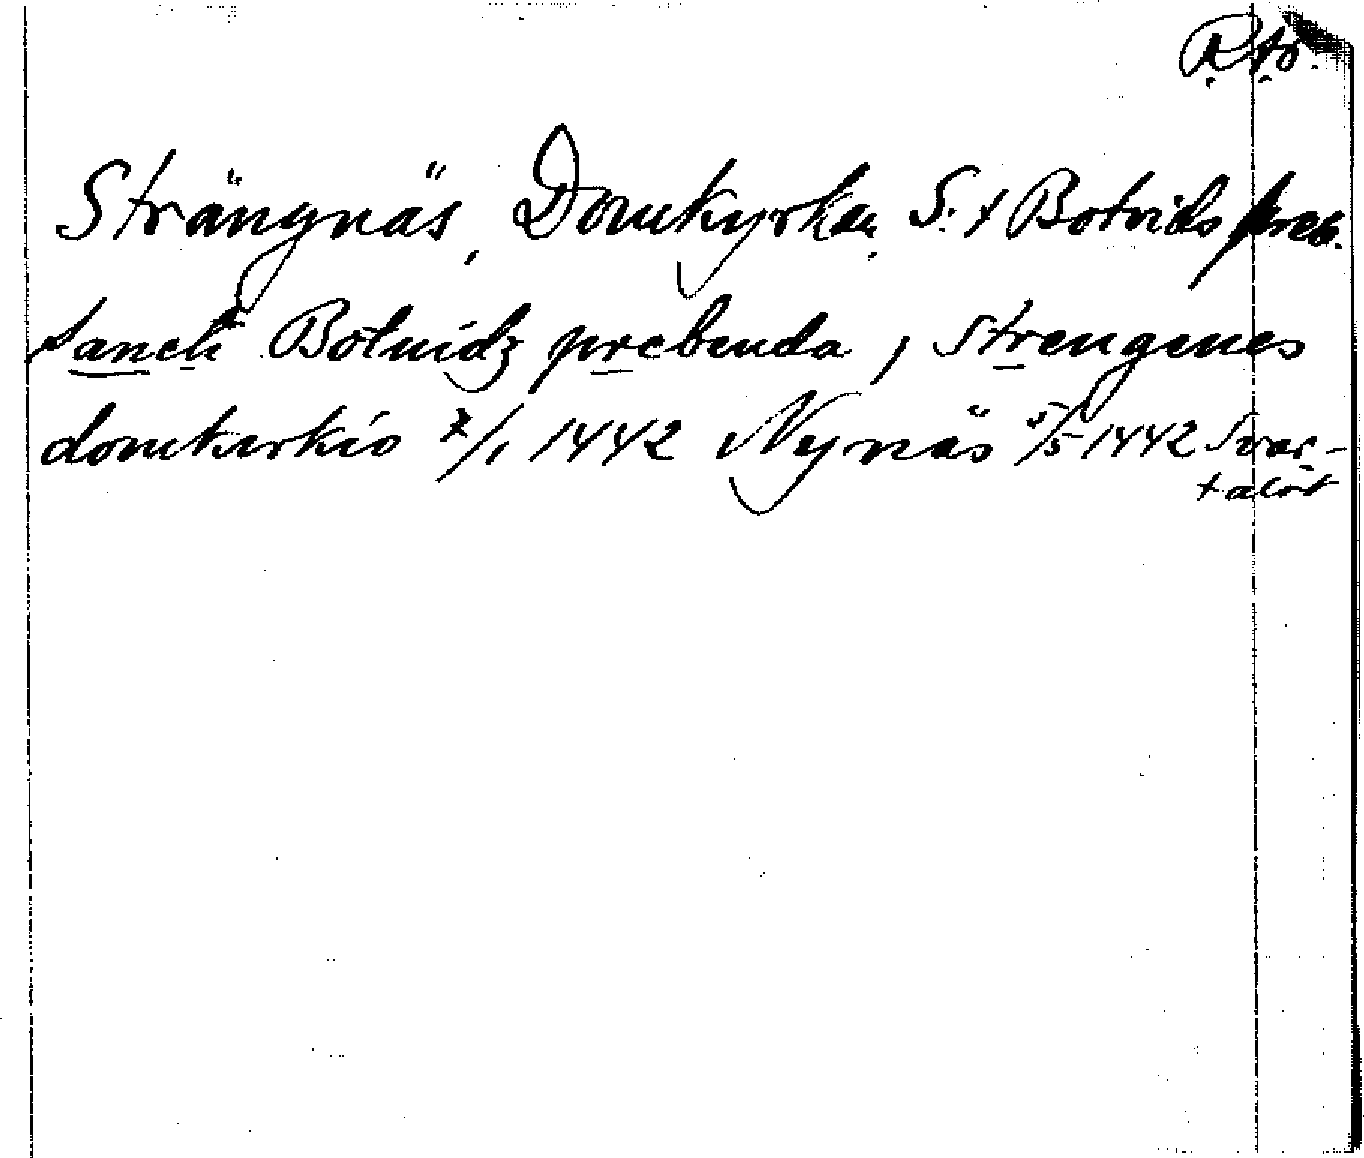 Rtö.
Strängnäs, Domkyrkan. S:t Botvids preb.
sancti Botuidz prebenda, Strengenes
domkirkio 7/1 1442 Nynäs 5/5 1442 Svar-
talöt